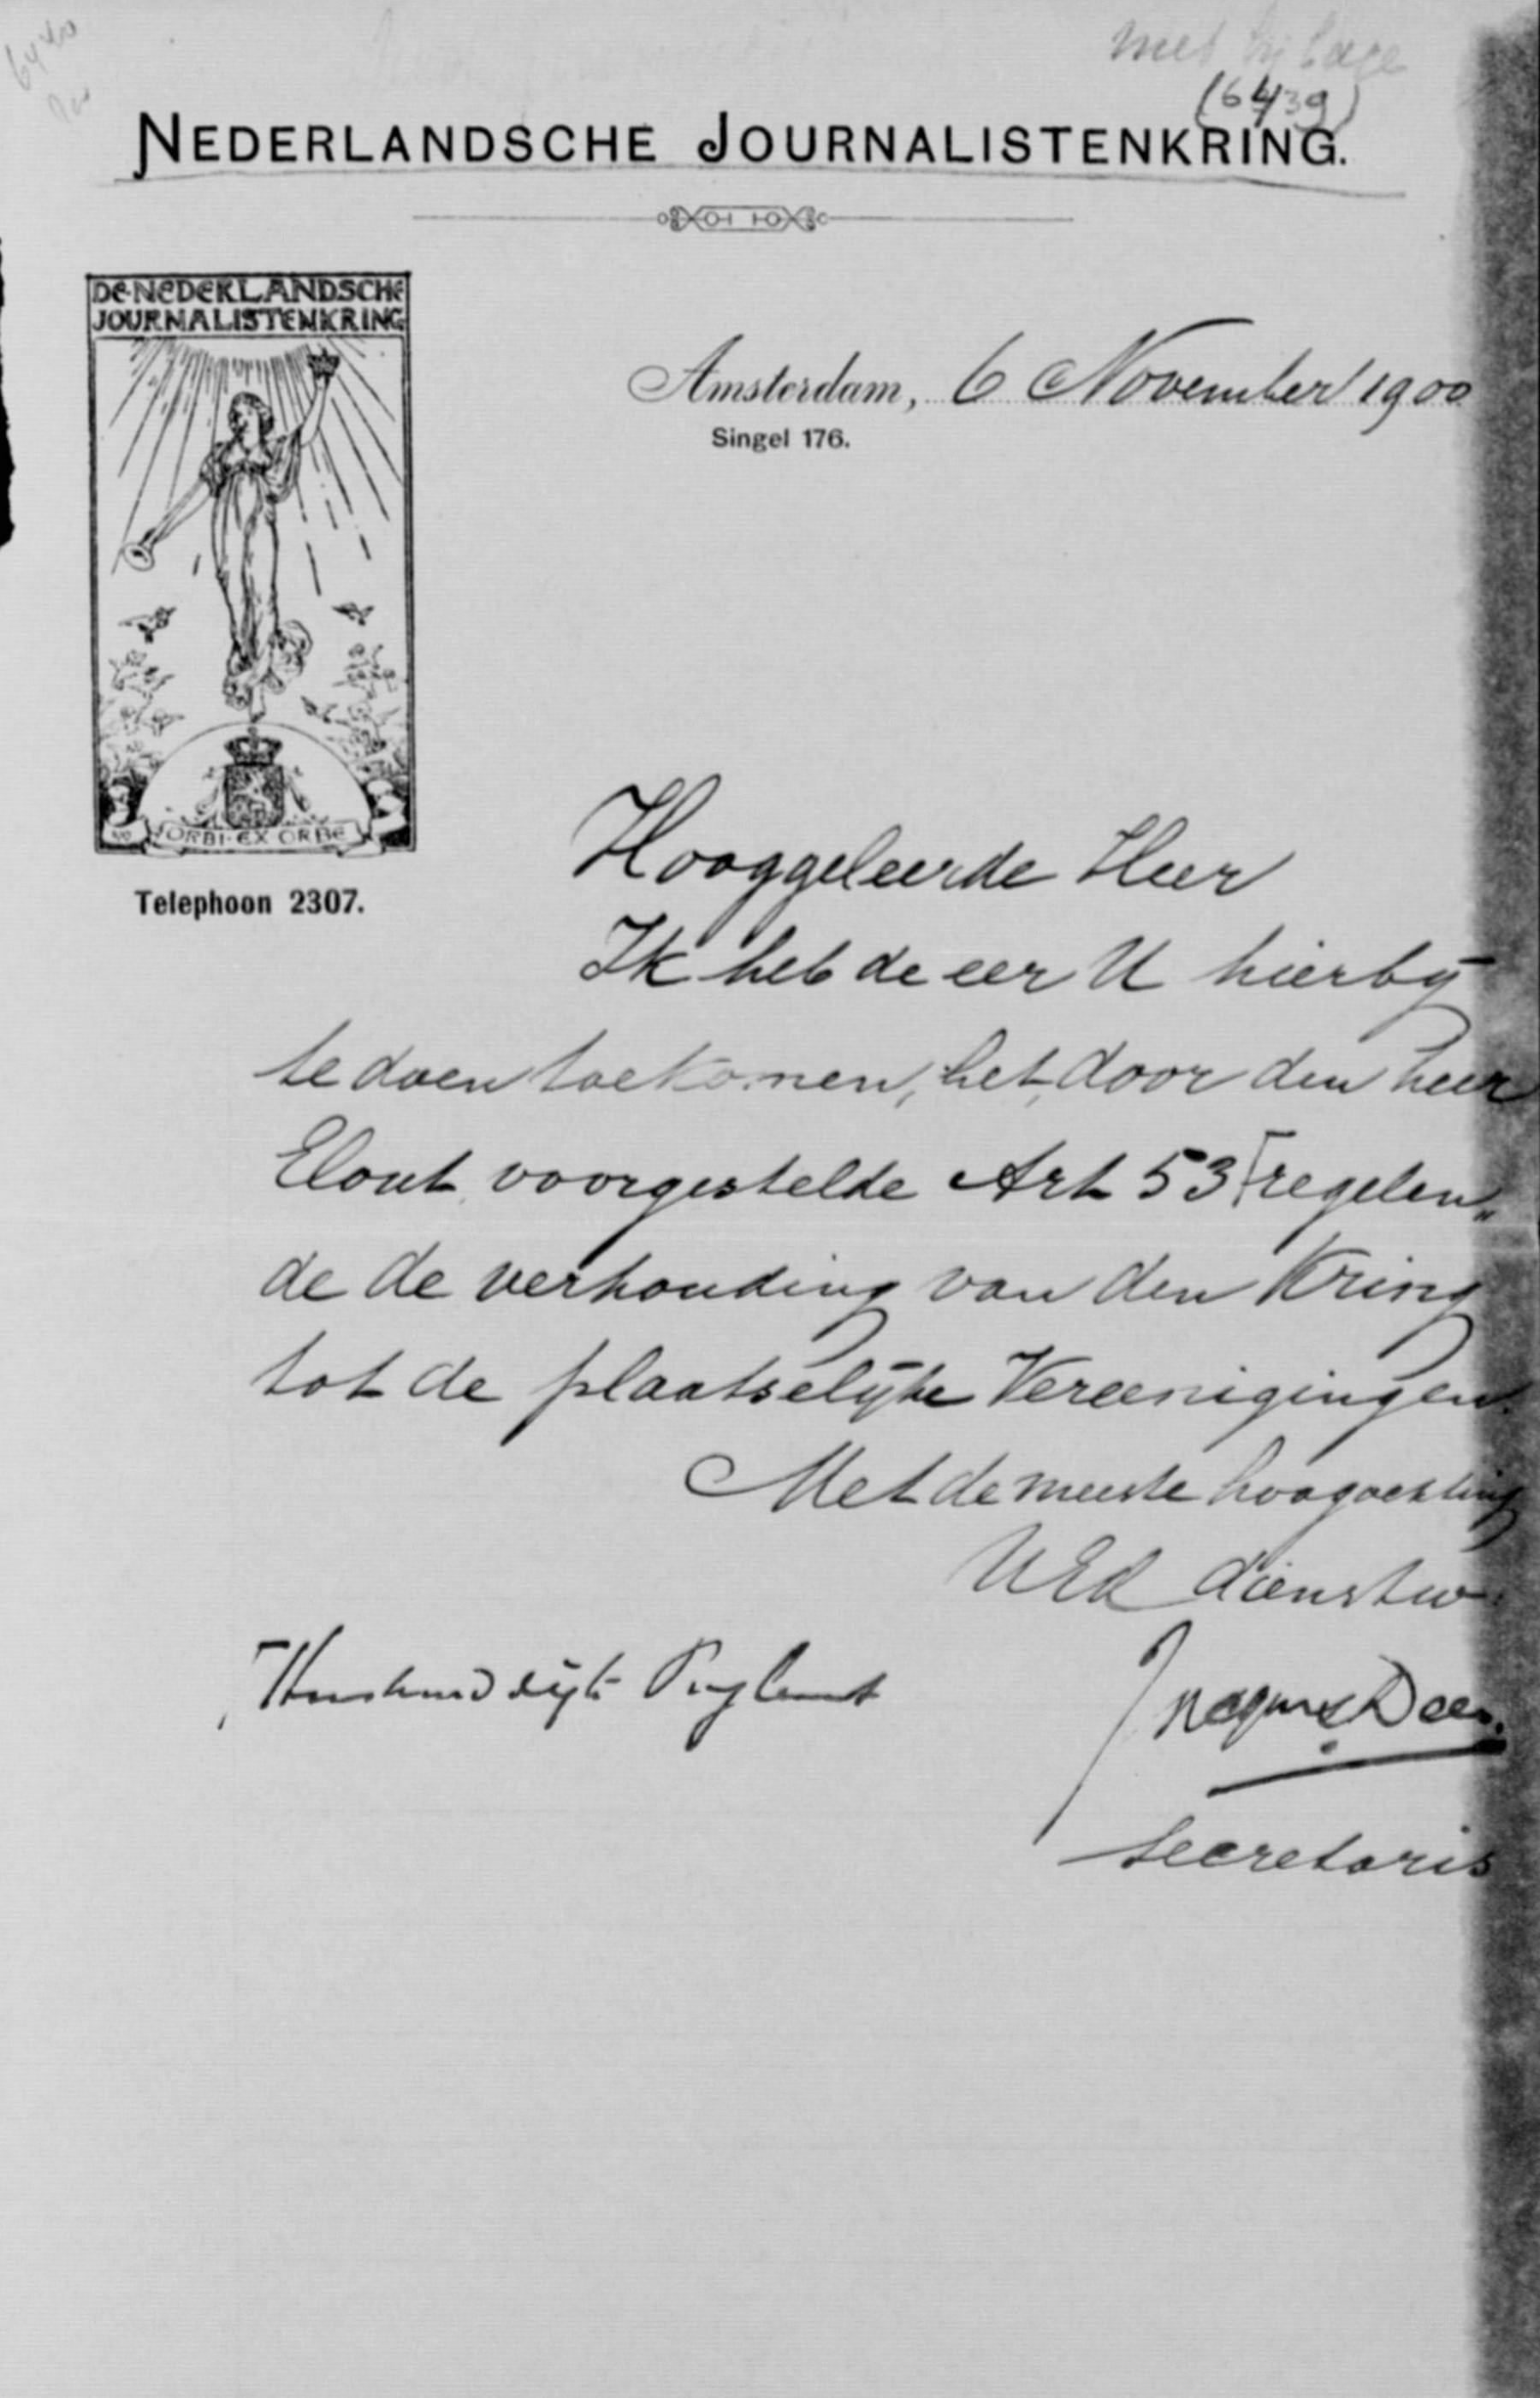 6440
met bijlage
(6439)
NEDERLANDSCHE JOURNALISTENKRING.
DE NEDERLANDSCHE
JOURNALISTENKRING
ORBI EX ORBE
Telephoon 2307.
Amsterdam, 6 November 1900
Singel 176.
Hooggeleerde Heer
Ik heb de eer U hierbij
te doen toekomen, het door den heer
Elout voorgestelde Art 53 regelen„
de de verhouding van den Kring
tot de plaatselijke Vereenigingen.
Met de meeste hoogachting
UEd dienstw.
Jacques Deen.
Secretaris